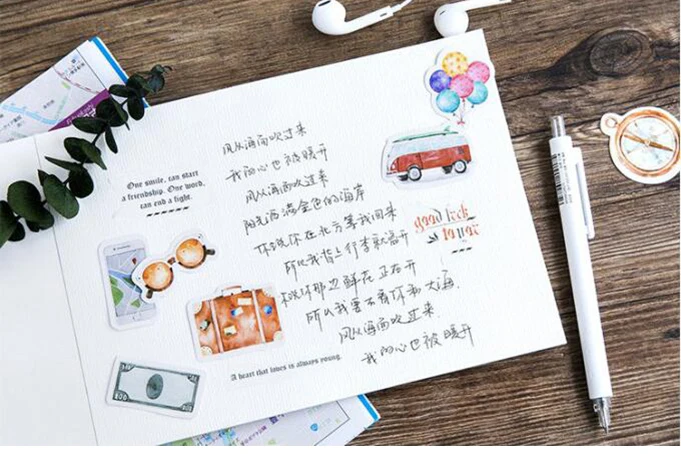 风从海面吹过来
我的心也被暖开
风从海面吹过来
阳光洒满金色的海岸
你说你在北方等我回来
所以我背上行李就离开
那边鲜花正在开
所以我要去看你和大海.
风从海面吹过来.
我的心也被暖开
One smile, can start
a friendship. One word,
can end a fight.
good luck
to you
A heart that loves is always young.
100 100